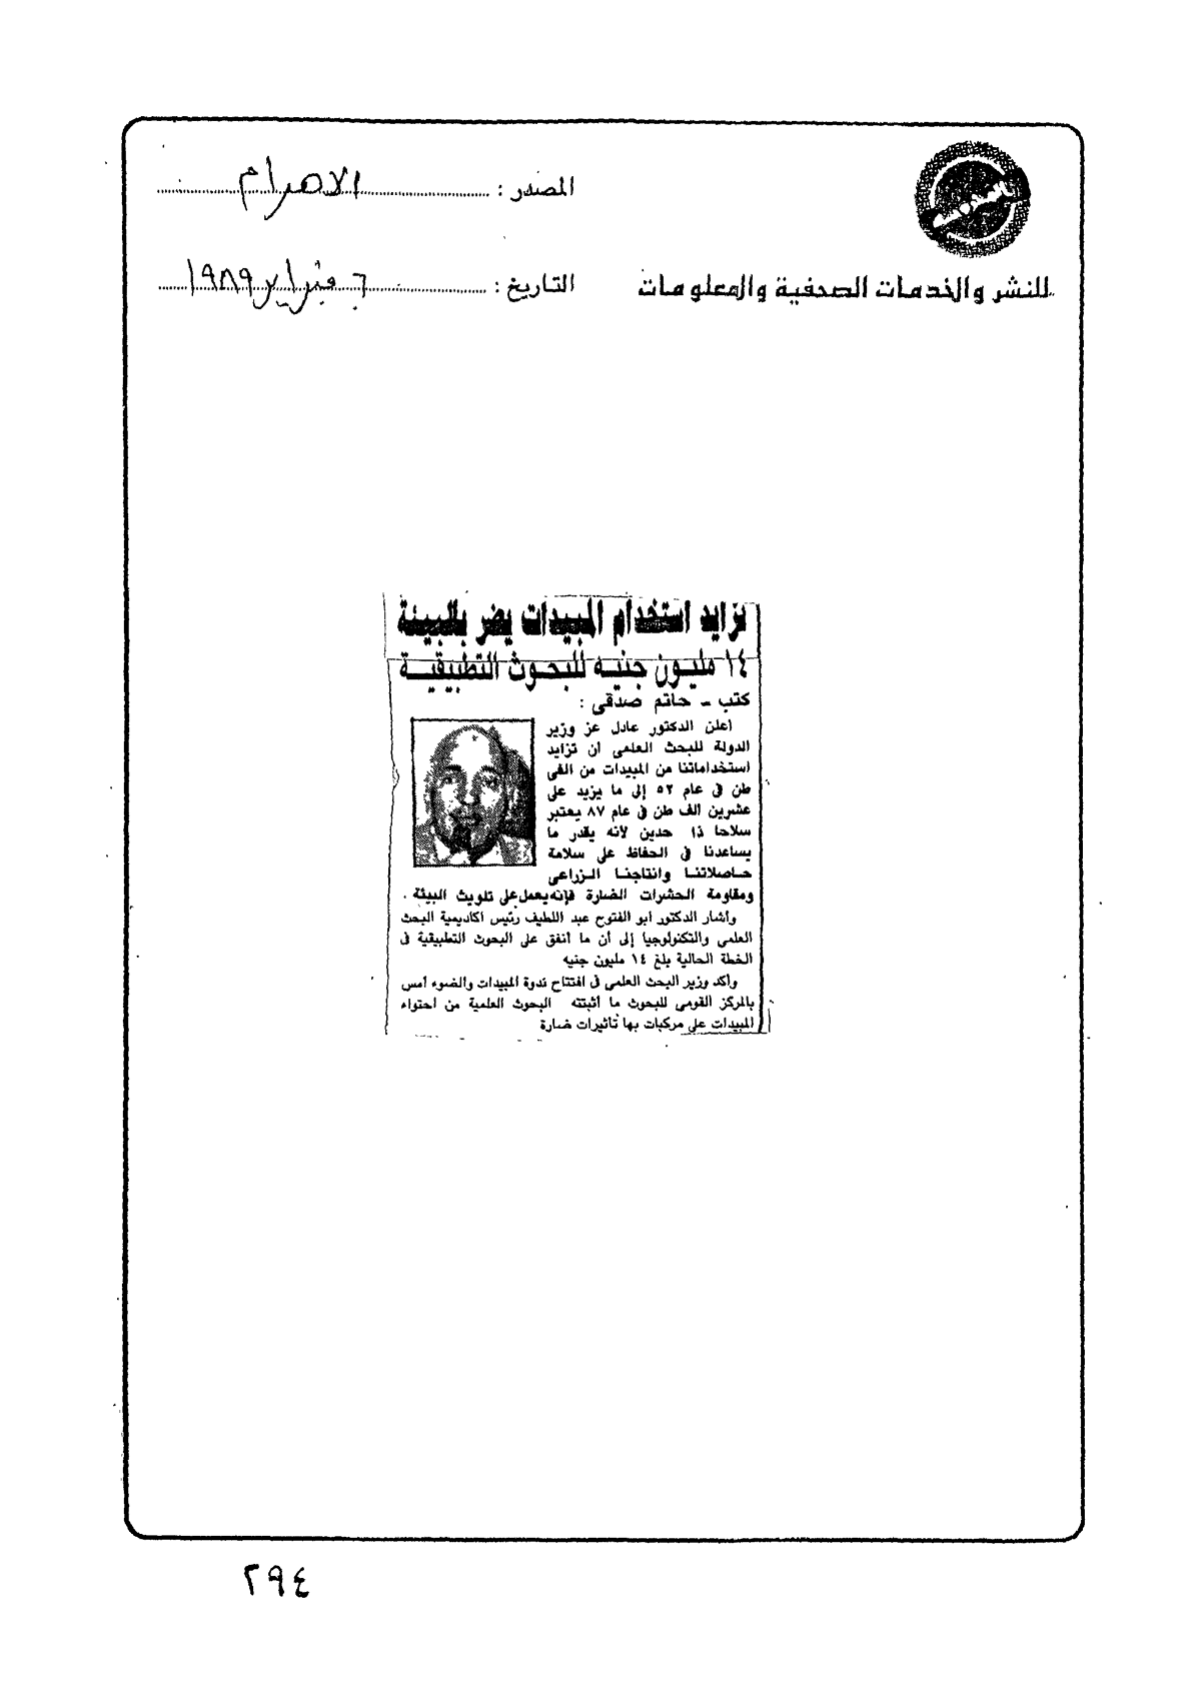 المصدر : الاهرام
للنشر والخدمات الصحفية والمعلومات
التاريخ : ٦ فبراير ١٩٨٩
تزايد استخدام المبيدات يضر بالبيئة
١٤ مليون جنيه للبحوث التطبيقية
كتب ـ حاتم صدقى :
اعلن الدكتور عادل عز وزير
الدولة للبحث العلمى ان تزايد
استخداماتنا من المبيدات من الفى
طن فى عام ٥٢ إلى ما يزيد على
عشرين الف طن فى عام ٨٧ يعتبر
سلاحا ذا حدين لأنه يقدر ما
يساعدنا فى الحفاظ على سلامة
حاصلاتنا وانتاجنا الزراعى
ومقاومة الحشرات الضارة فإنه يعمل على تلويث البيئة .
وأشار الدكتور ابو الفتوح عبد اللطيف رئيس اكاديمية البحث
العلمى والتكنولوجيا إلى أن ما أنفق على البحوث التطبيقية فى
الخطة الحالية بلغ ١٤ مليون جنيه
وأكد وزير البحث العلمى فى افتتاح ندوة المبيدات والضوء أمس
بالمركز القومى للبحوث ما أثبتته البحوث العلمية من احتواء
المبيدات على مركبات بها تأثيرات ضارة
٢٩٤